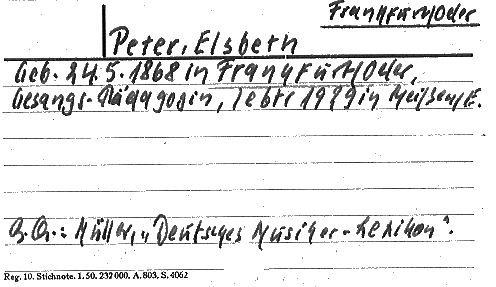 Frankfurt/Oder
Peter, Elsbeth
Geb. 24.5.1868 in Frankfurt/Oder,
Gesangs-Pädagogin, lebte 1929 in Meißen/E.
Q.: Müller, „Deutsches Musiker-Lexikon".
Reg. 10. Stichnote. 1. 50. 232000. A. 803. S. 4062